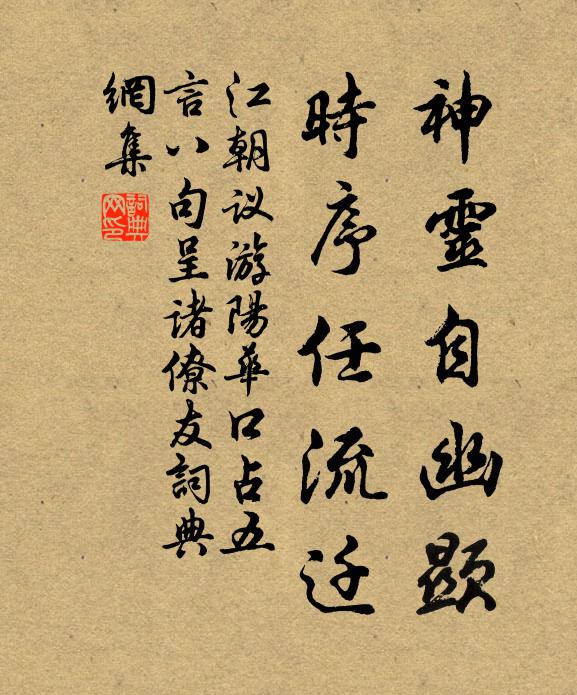 神靈自幽顯
時序任流迁
江朝议游陽華口占五
言八句呈诸僚友詞典
網集
詞典网印